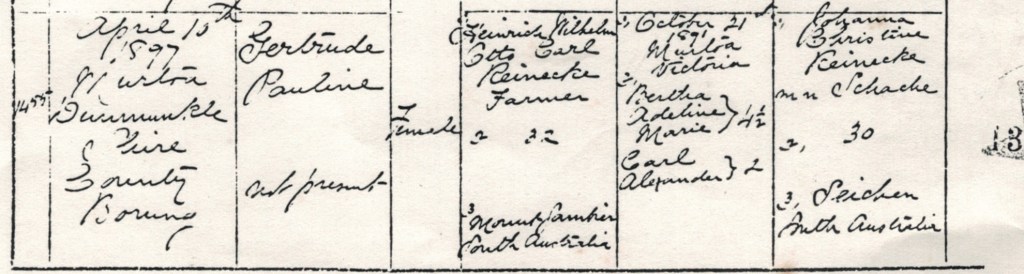 1455
April 10th
1897
Murtoa
Dunmunkle
Shire
County
Borung
Gertrude
Pauline
not present
Female
Heinrich Wilhelm
Otto Carl
Reinecke
Farmer
2 32
3 Mount Gambier
South Australia
1, October 21st
1891
Murtoa
Victoria
2, Bertha
Adeline
Marie } 4½
Carl
Alexander } 2
1, Johanna
Christine
Reinecke
m n Schache
2, 30
3,
South Australia
13